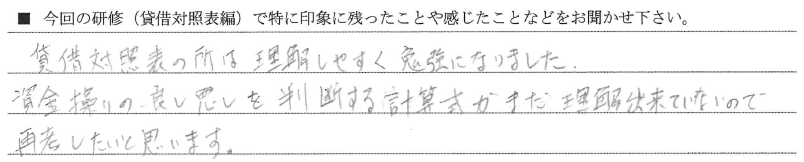 ■ 今回の研修（貸借対照表編）で特に印象に残ったことや感じたことなどをお聞かせ下さい。
貸借対照表の所は理解しやすく勉強になりました.
資金操りの良し悪しを判断する計算式がまだ理解出来ていないので
再考したいと思います。